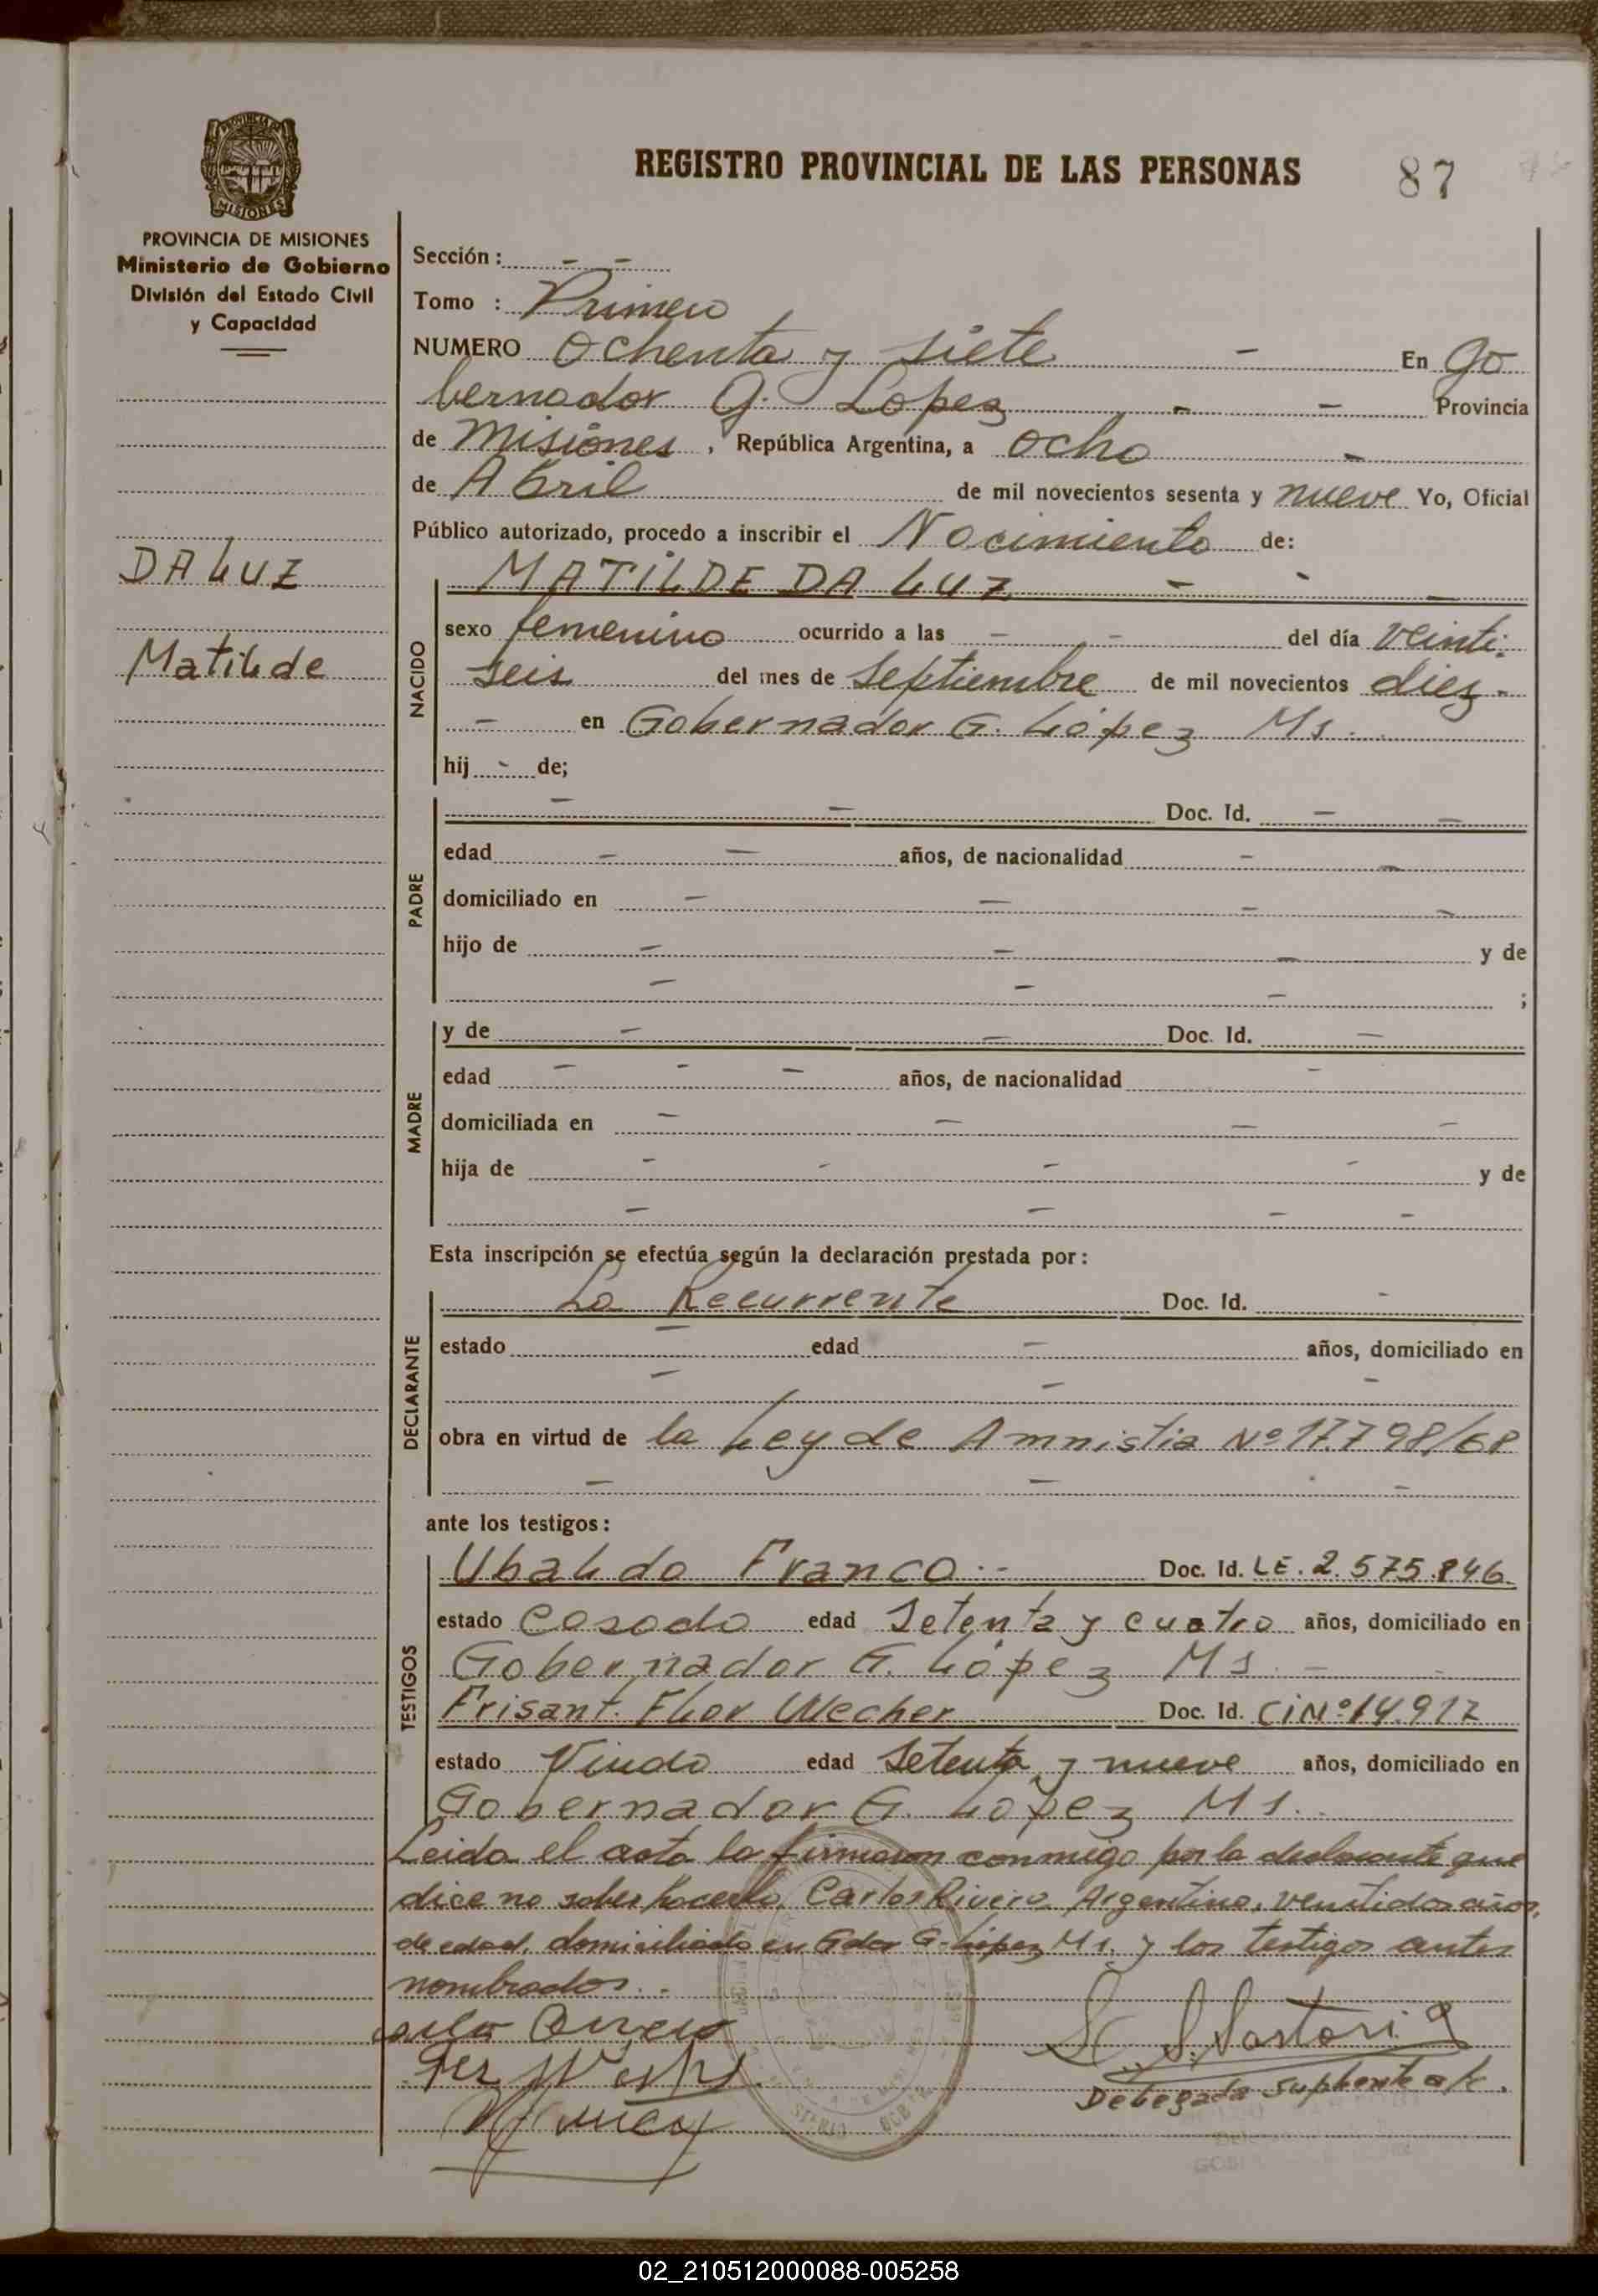 REGISTRO PROVINCIAL DE LAS PERSONAS 87
PROVINCIA DE MISIONES
MISIONES
PROVINCIA DE MISIONES
Ministerio de Gobierno
División del Estado Civil
y Capacidad
DA LUZ
Matilde
Sección : - -
Tomo : Primero
NUMERO Ochenta y siete - En Go
bernador G. Lopez - - Provincia
de Misiones, República Argentina, a ocho -
de Abril de mil novecientos sesenta y nueve Yo, Oficial
Público autorizado, procedo a inscribir el Nacimiento de:
NACIDO
MATILDE DA LUZ - - -
sexo femenino ocurrido a las - - del día veinti-
seis del mes de Septiembre de mil novecientos diez -
- en Gobernador G. López Ms.
hij - de;
PADRE
- - Doc. Id. - -
edad - - años, de nacionalidad - -
domiciliado en - - - -
hijo de - - - y de
- - - ;
MADRE
y de - - Doc. Id. -
edad - - - años, de nacionalidad -
domiciliada en - - - -
hija de - - - - y de
- - - -
Esta inscripción se efectúa según la declaración prestada por :
DECLARANTE
La Recurrente Doc. Id. -
estado - edad - años, domiciliado en
- - -
obra en virtud de la Ley de Amnistia Nº 17.798/68
- - -
ante los testigos :
TESTIGOS
Ubaldo Franco.- Doc. Id. LE. 2.575.846.
estado Casado edad Setenta y cuatro años, domiciliado en
Gobernador G. López Ms. - -
Frisant. Flor Wecher Doc. Id. CiNº14.917
estado Viudo edad Setenta y nueve años, domiciliado en
Gobernador G. López Ms.
Leida el acta la firmaron conmigo por la declarante que
dice no saber hacerlo, Carlos Rivero Argentino, veintidos años,
de edad, domiciliado en Gdor G. López Ms. y los testigos antes
nombrados.-
S. Sartori
Delegada Suplente a/c.
02_210512000088-005258